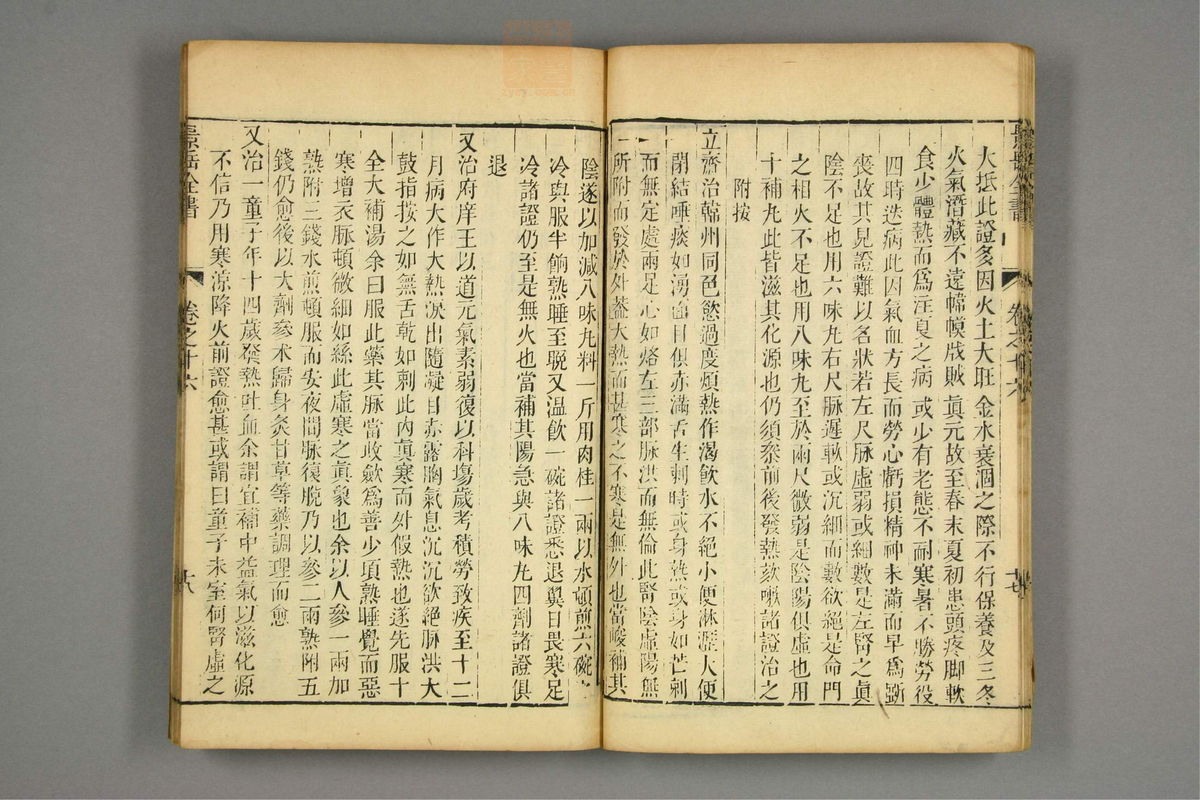 大抵此證多因火土大旺金水衰涸之際不行保養及三冬
火氣潛藏不遠幃幙戕賊眞元故至春末夏初患頭疼脚軟
食少體熱而爲注夏之病或少有老態不耐寒暑不勝勞役
四時迭病此因氣血方長而勞心虧損精神未滿而早爲斵
喪故其見證難以名狀若左尺脉虛弱或細數是左腎之眞
陰不足也用六味丸右尺脉遲軟或沉細而數欲絕是命門
之相火不足也用八味丸至於兩尺微弱是陰陽俱虛也用
十補丸此皆滋其化源也仍須叅前後發熱欬嗽諸證治之
附按
立齋治韓州同色慾過度煩熱作渴飮水不絕小便淋瀝大便
閉結唾痰如湧面目俱赤滿舌生刺時或身熱或身如芒刺
而無定處兩足心如烙左三部脉洪而無倫此腎陰虛陽無
所附而發於外葢大熱而甚寒之不寒是無外也當峻補其
景岳全書
卷之十六
陰遂以加減八味丸料一斤用肉桂一兩以水頓煎六碗
冷與服半餉熟睡至晩又溫飮一碗諸證悉退翼日畏寒足
冷諸證仍至是無火也當補其陽急與八味丸四劑諸證俱
退
又治府庠王以道元氣素弱復以科塲歲考積勞致疾至十二
月病大作大熱淚出隨凝目赤露胸氣息沉沉欲絕脉洪大
鼓指按之如無舌乾如刺此內眞寒而外假熱也遂先服十
全大補湯余曰服此藥其脉當收斂爲善少頃熟睡覺而惡
寒增衣脉頓微細如絲此虛寒之眞象也余以人參一兩加
熟附三錢水煎頓服而安夜間脉復脫乃以參二兩熟附五
錢仍愈後以大劑參术歸身炙甘草等藥調理而愈
又治一童子年十四歲發熱吐血余謂宜補中益氣以滋化源
不信乃用寒凉降火前證愈甚或謂曰童子未室何腎虛之
景岳全書
卷之十六